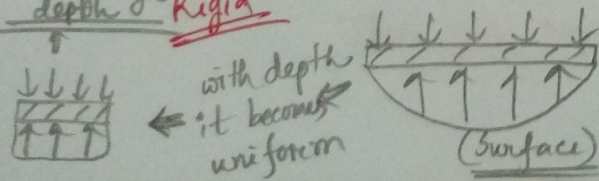 depth
Rigid
with depth
it becomes
uniform
(Surface)